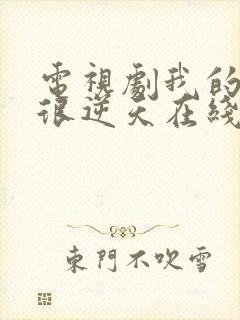 電視劇我的
很逆天在綫
東門不吹雪